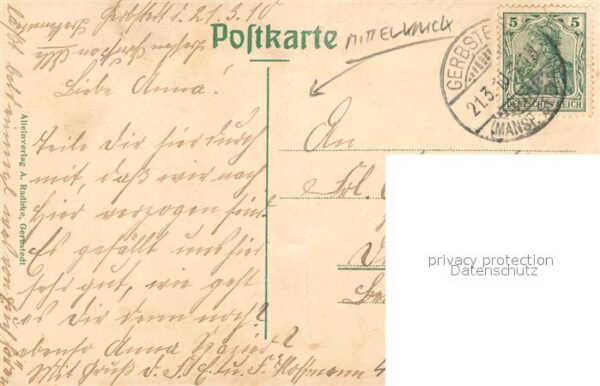 Gerbstedt d. 21.3.10
Postkarte
MITTELKNICK
5 5
DEUTSCHES REICH
GERBSTE
21.3.10
(MANSF.
Liebe Anna!
Teile Dir hierdurch
mit, daß wir nach
hier verzogen sind.
Es gefällt uns hier
sehr gut, wie geht
es Dir denn noch?
ebenso Anna
Mit Gruß d. F. E. u. F. Hoffmann
An
Frl.
Alleinverlag A. Radicke, Gerbstedt
privacy protection
Datenschutz